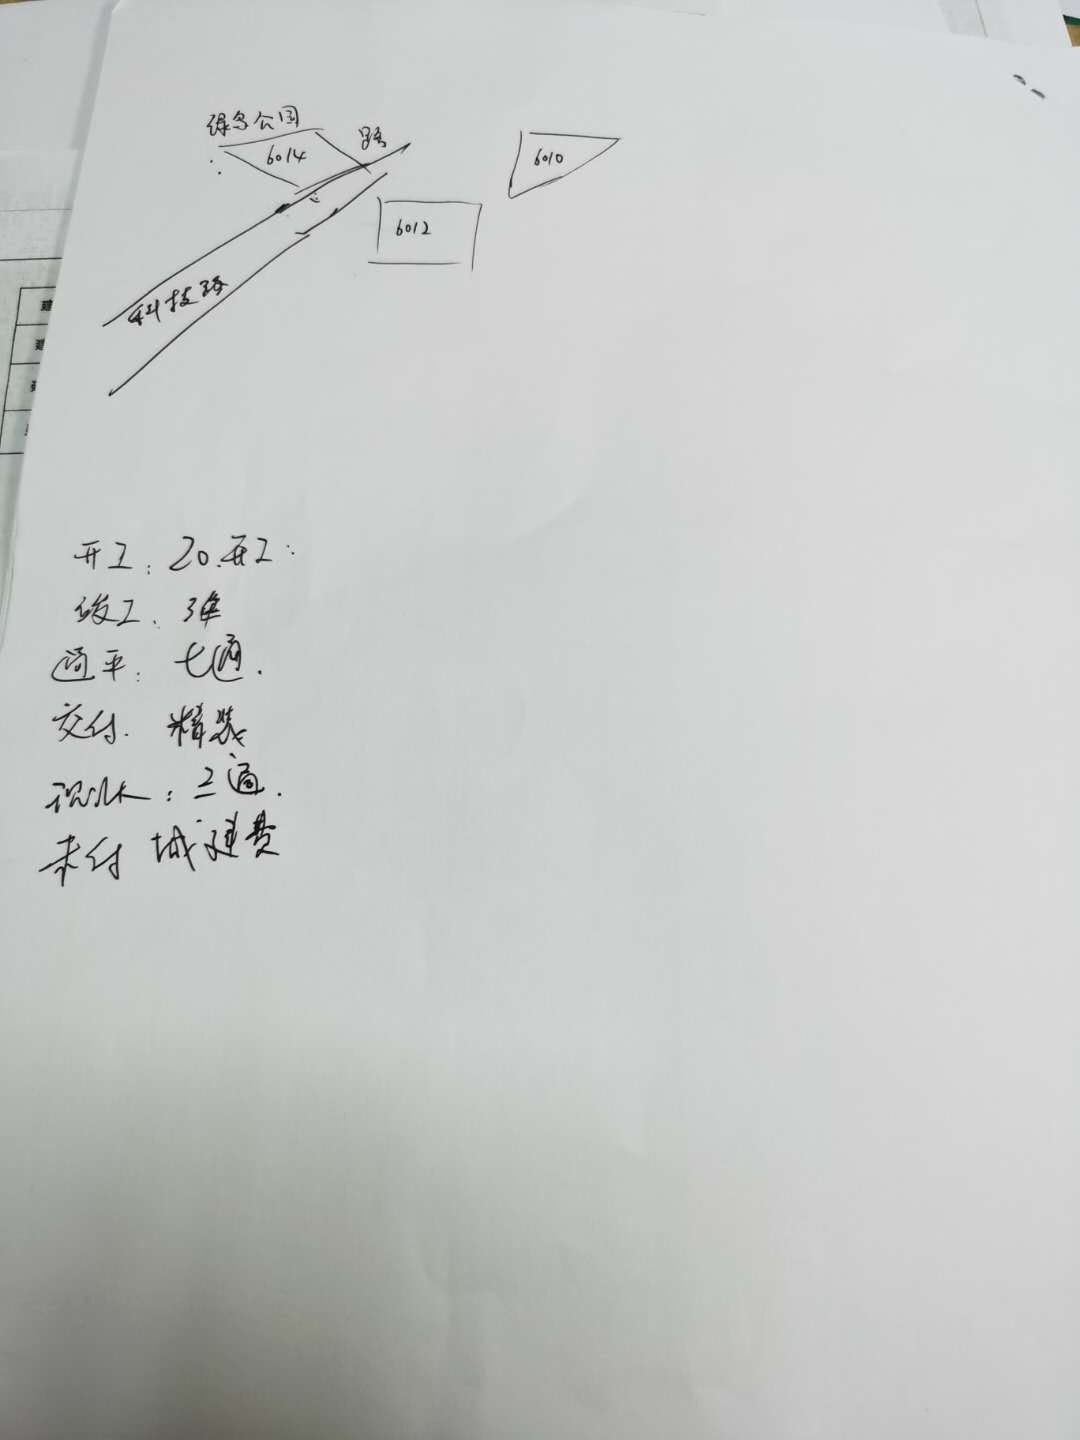 绿岛公园
路
6014
6010
6012
科技路
开工：20.开工：
竣工、3年
通平：七通.
交付. 精装
现状：三通.
未付 城建费